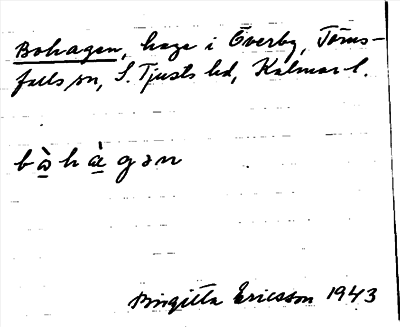 Bohagen, hage i Överby, Törns-
falls sn, S. Tjusts hd, Kalmar l.
bàhàgən
Birgitta Ericsson 1943